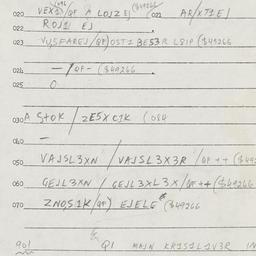 020 VEX1/QF A LOJZ EJ ($49266 021 AR/XT1EJ
022 ROJ1 EJ
023 VYSFAREJ/QF) OST1 BE53R LSIP ($49266
024 —/QF- ($49266
025 0
030A STOK / ZE5XC1K (084
040 —
050 VAJSL3XN / VAJSL3X3R /QF++ ($492
060 GEJL3XN / GEJL3XL3X/QF++ ($49266
070 ZNOS1K/QF) EJELE* ($49266
901 Q1 MAJN KRJS1L1V3R